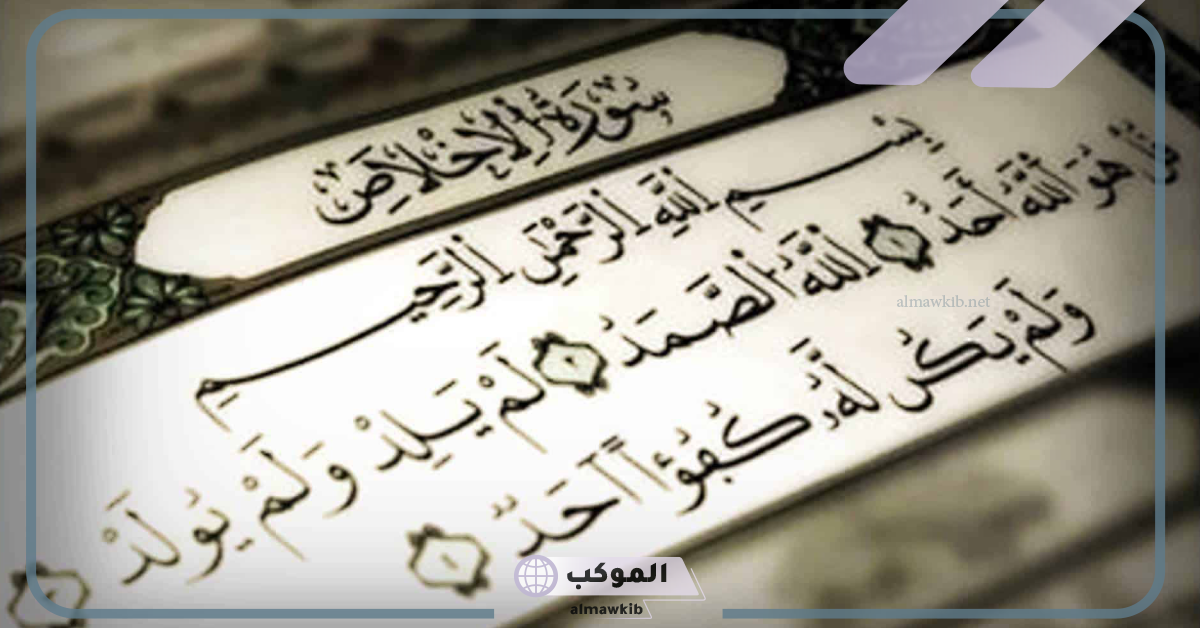 سُورَةُ الْإِخْلَاصِ
بِسْمِ اللَّهِ الرَّحْمَٰنِ الرَّحِيمِ
قُلْ هُوَ اللَّهُ أَحَدٌ اللَّهُ الصَّمَدُ لَمْ يَلِدْ وَلَمْ يُولَدْ
وَلَمْ يَكُن لَّهُ كُفُؤاً أَحَدٌ
almawkib.net
الموكب
almawkib